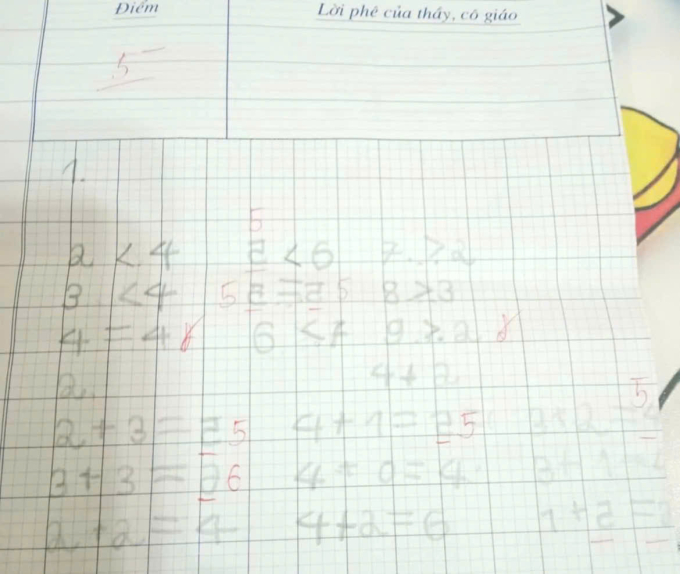 Điểm Lời phê của thầy, cô giáo
5
1.
5
2 < 4 2 < 6 7 > 2
3 < 4 5 2 = 2 5 8 > 3
4 = 4 6 < 9 > 2
2. 4 + 2
5
2 + 3 = 2 5 4 + 1 = 2 5 3 + 2 =
3 + 3 = 6 4 + 0 = 4 3 + 1 =
2 + 2 = 4 4 + 2 = 6 1 + 2 =